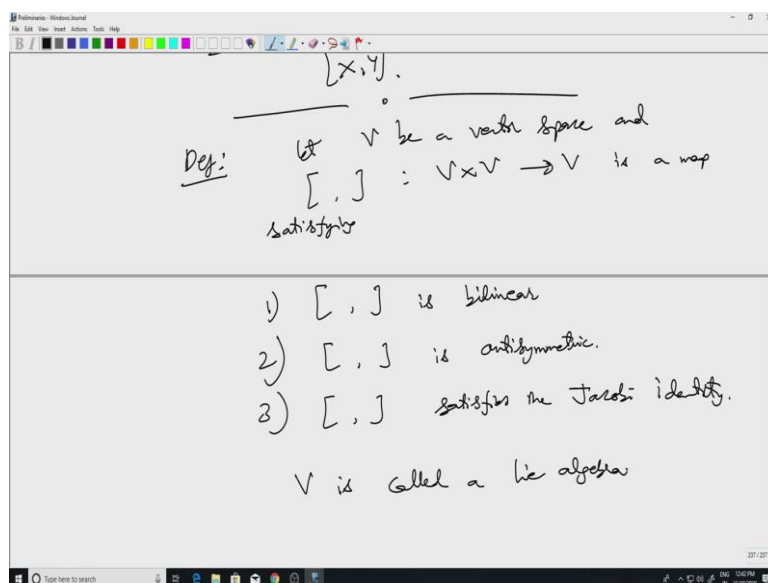 Preliminaries - Windows Journal
File Edit View Insert Actions Tools Help
B I
[X,Y].
Def: let V be a vector space and
[ , ] : V×V → V is a map
satisfying
1) [ , ] is bilinear
2) [ , ] is antisymmetric.
3) [ , ] satisfies the Jacobi identity.
V is called a lie algebra
237 / 237
Type here to search
ENG 12:42 PM